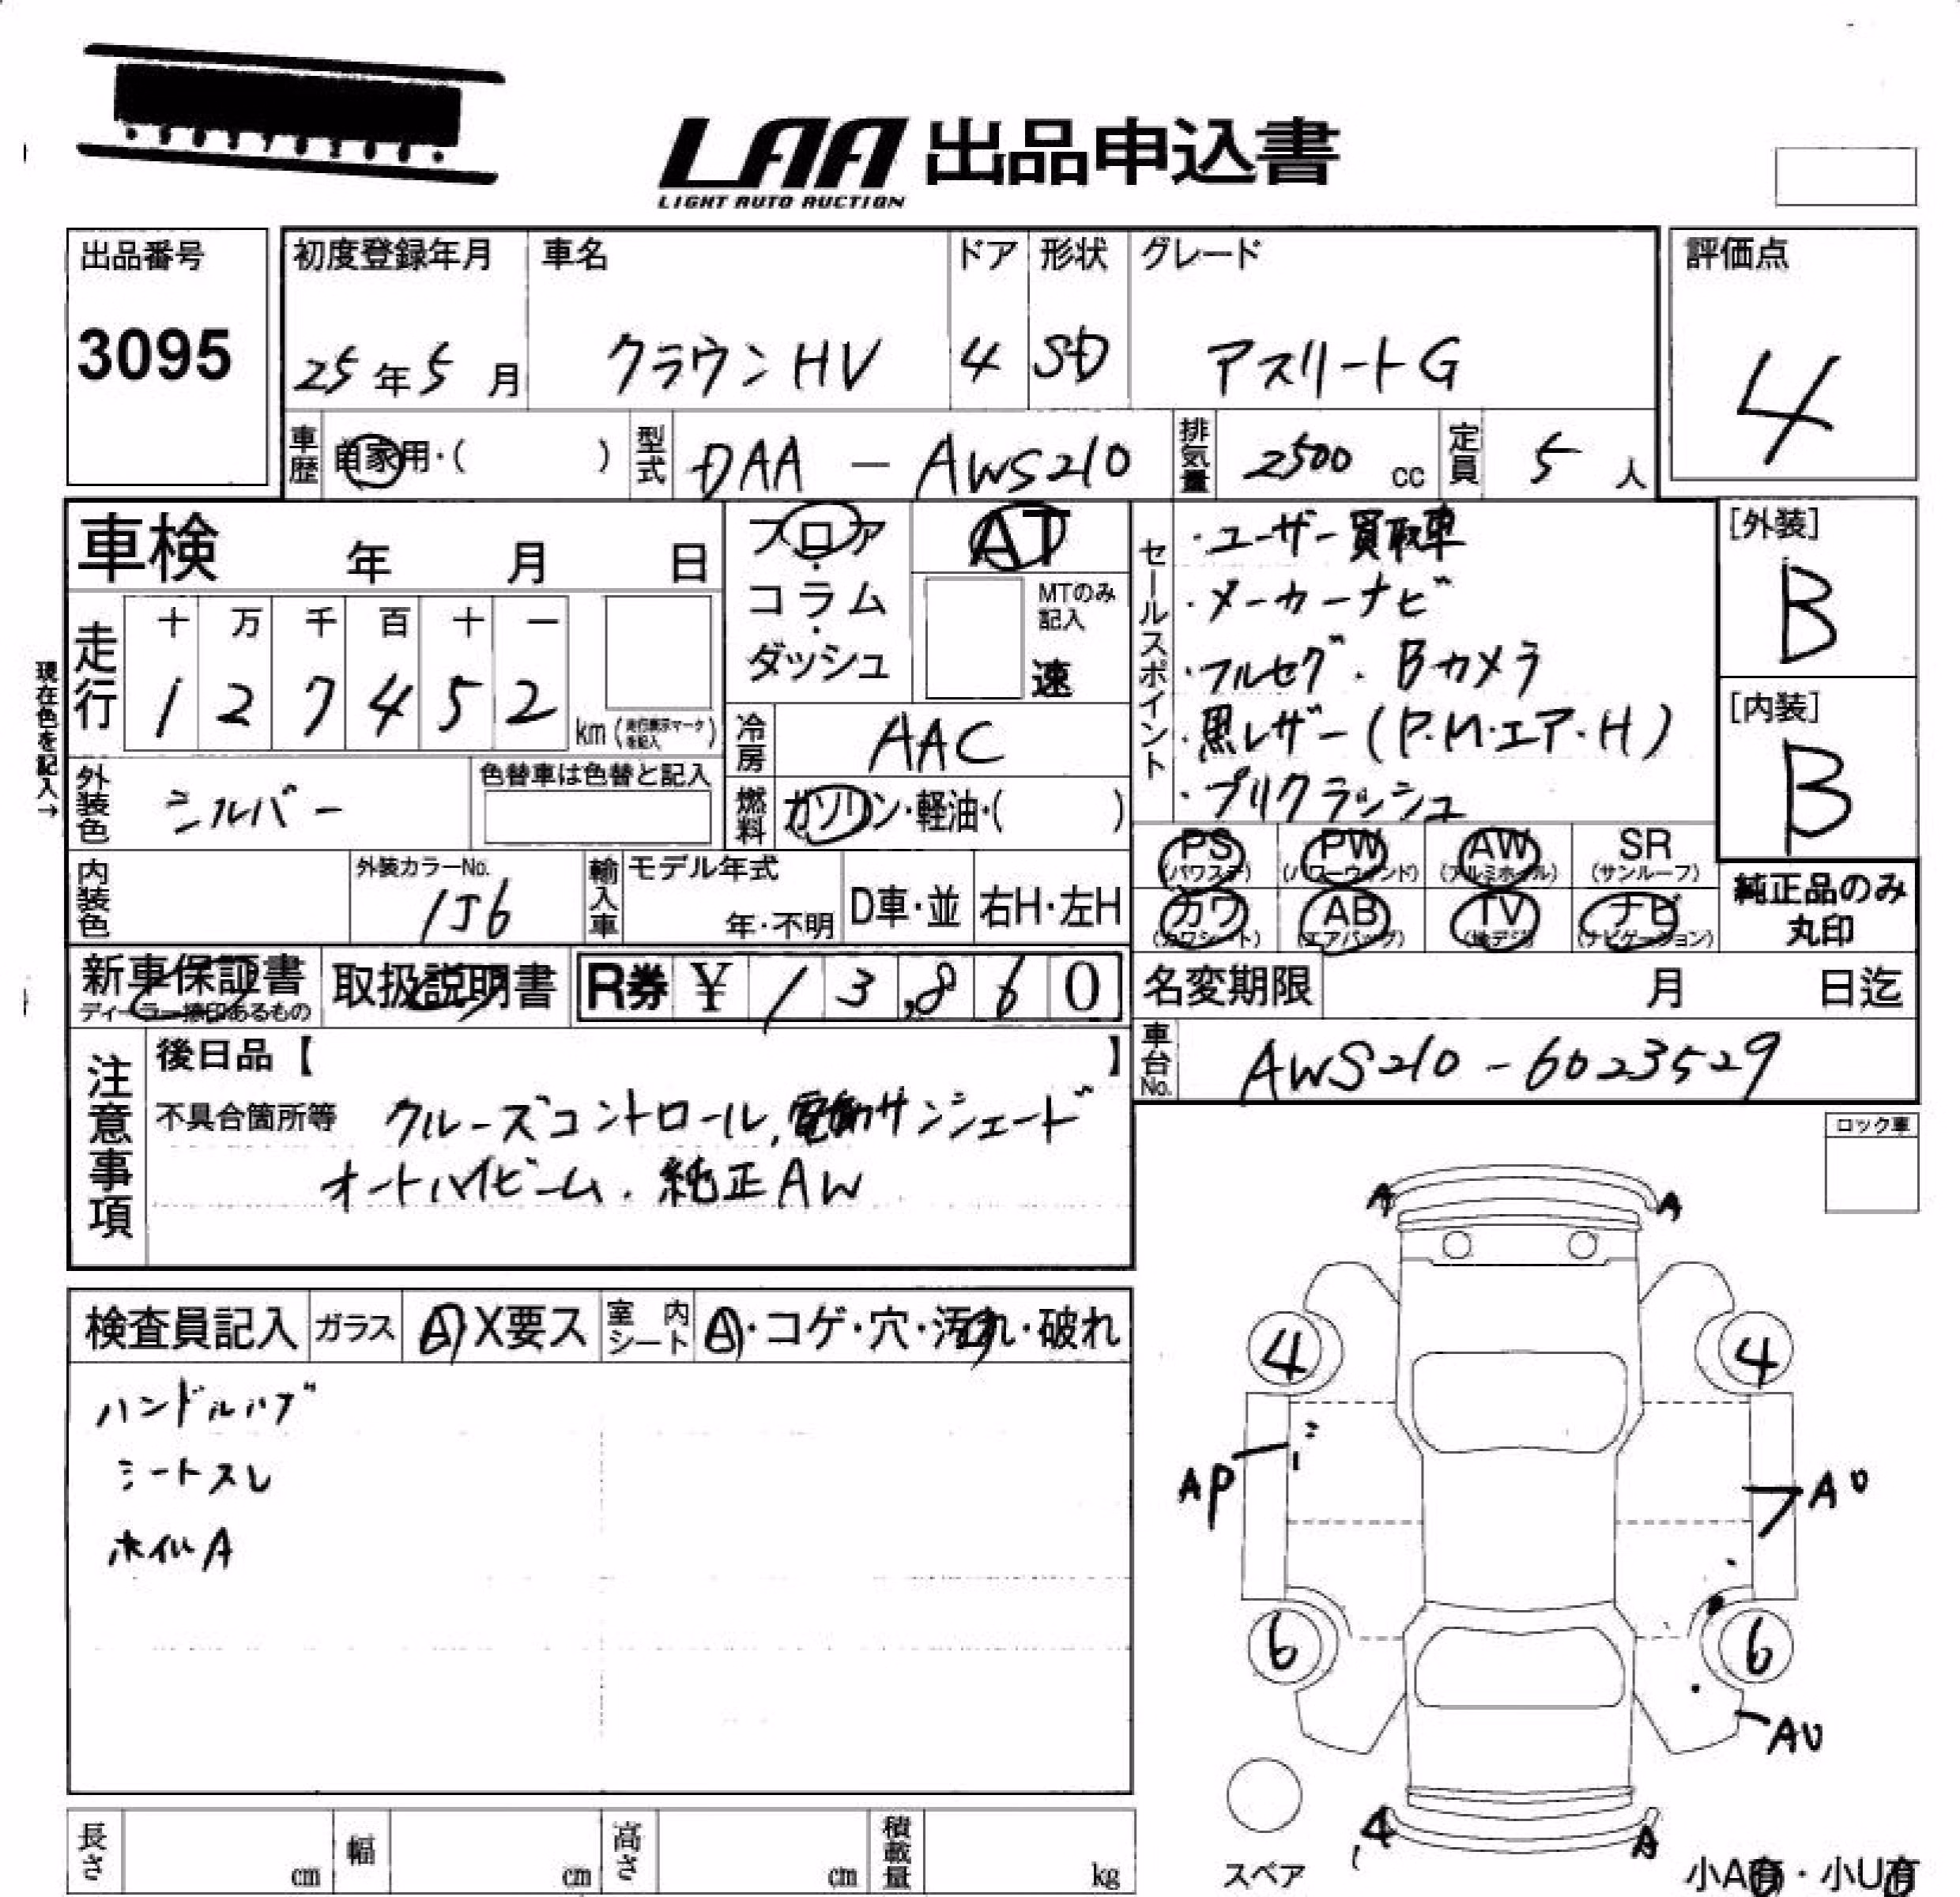 LAA 出品申込書
LIGHT AUTO AUCTION
出品番号
3095
初度登録年月
25年5月
車名
クラウンHV
ドア
4
形状
SD
グレード
アスリートG
評価点
4
車歴
自家用・( )
型式
DAA - AWS210
排気量
2500 cc
定員
5 人
車検 年 月 日
フロア・コラム・ダッシュ
AT
MTのみ記入
速
セールスポイント
・ユーザー買取車
・メーカーナビ
・フルセグ・Bカメラ
・黒レザー(P.M.エア.H)
・プリクラッシュ
[外装]
B
[内装]
B
現在色を記入→
走行
十 万 千 百 十 一
1 2 7 4 5 2
km (走行表示マークを記入)
冷房
AAC
外装色
シルバー
色替車は色替と記入
燃料
ガソリン・軽油・( )
PS (パワステ)
PW (パワーウィンド)
AW (アルミホイル)
SR (サンルーフ)
カワ (カワシート)
AB (エアバッグ)
TV (地デジ)
ナビ (ナビゲーション)
純正品のみ丸印
内装色
外装カラーNo.
1J6
輸入車
モデル年式
年・不明
D車・並
右H・左H
新車保証書
ディーラー捺印あるもの
取扱説明書
R券 ¥ 13,860
名変期限 月 日迄
車台No.
AWS210-6023529
注意事項
後日品【 】
不具合箇所等
クルーズコントロール、電動サンシェード
オートハイビーム、純正AW
ロック車
検査員記入
ガラス
A X要ス
室内シート
A・コゲ・穴・汚れ・破れ
ハンドルハゲ
シートスレ
ホイルA
A A
4 4
AP
AU
6 6
AU
A A
スペア
小A有・小U有
長さ cm
幅 cm
高さ cm
積載量 kg